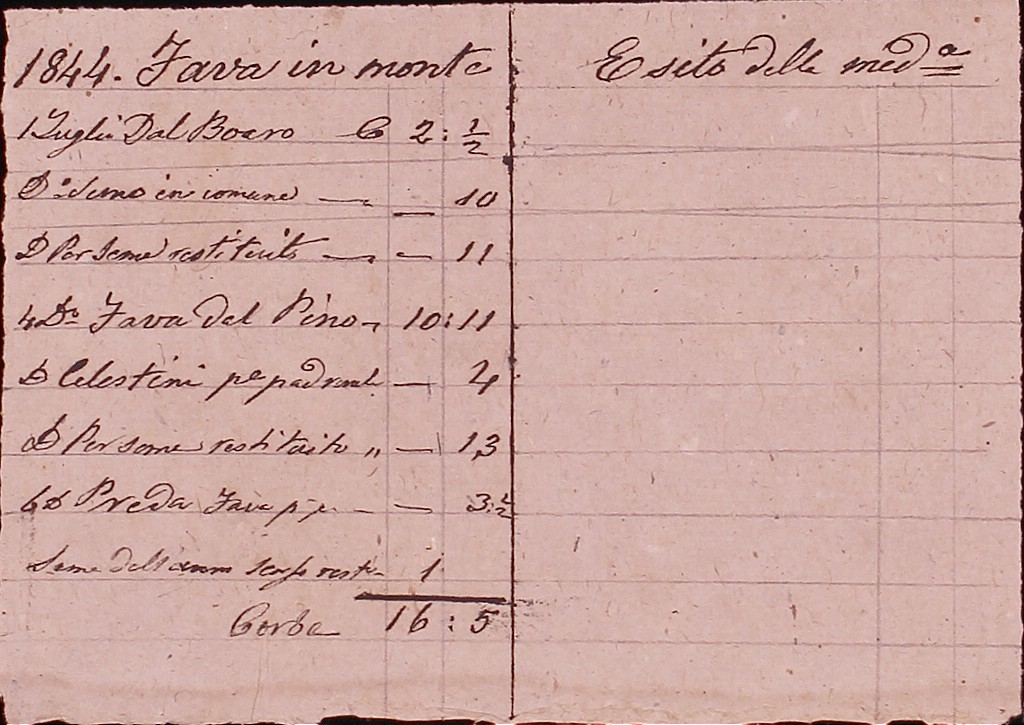 1844. Fava in monte
1 Luglio Dal Boaro C 2 : 1/2
Do. Seme in comune — — 10
D Per Seme restituito — — 11
4 Do. Fava del Pino 10 : 11
D Celestini pe padronale — 4
D Per Seme restituito „ — 13
6 D Preda Fava — — 3 : 1/2
Seme dell'anno scorso resto 1
Corbe 16 : 5
Esito della meda